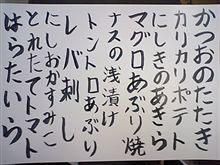 かつおのたたき
カリカリポテト
にしきのあきら
マグロあぶり焼
ナスの浅漬け
トントロあぶり
レバ刺し
にしおかすみこ
とれたてトマト
はらたいら